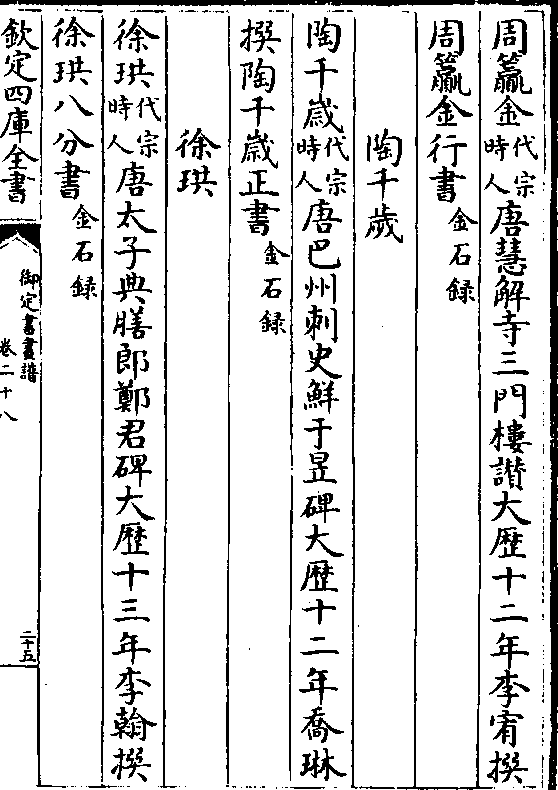 周籯金代宗時人唐慧解寺三門樓讃大歴十二年李宥撰
周籯金行書金石録
陶千歳
陶千歳代宗時人唐巴州刺史鮮于昱碑大歴十二年喬琳
撰陶千歳正書金石録
徐珙
徐珙代宗時人唐太子典膳郎鄭君碑大歴十三年李翰撰
徐珙八分書金石録
欽定四庫全書
御定書畫譜
卷二十八
二十五